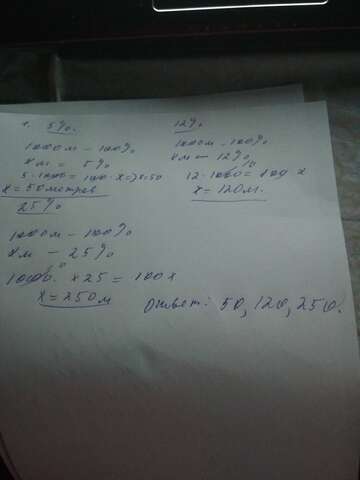 1. 5%.
1000м - 100%
xм = 5%
5 · 1000 = 100 · x
x = 50 метров
12%
1000м - 100%
xм - 12%
12 · 1000 = 100 x
x = 120м.
25%
1000м - 100%
xм - 25%
1000 · x 25 = 100x
x = 250м
Ответ: 50, 120, 250.